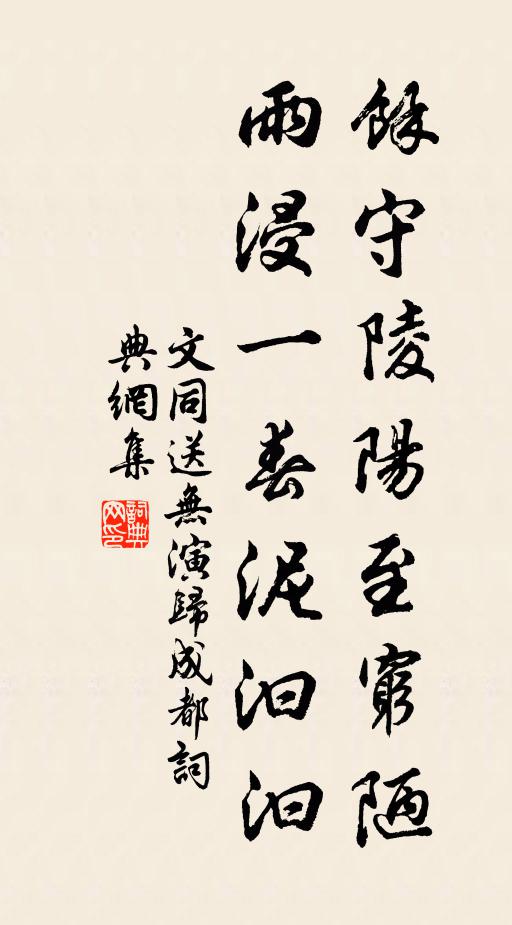 餘守陵陽至窮陋
雨浸一春泥汩汩
文同送無演歸成都詞
典網集
詞典网印